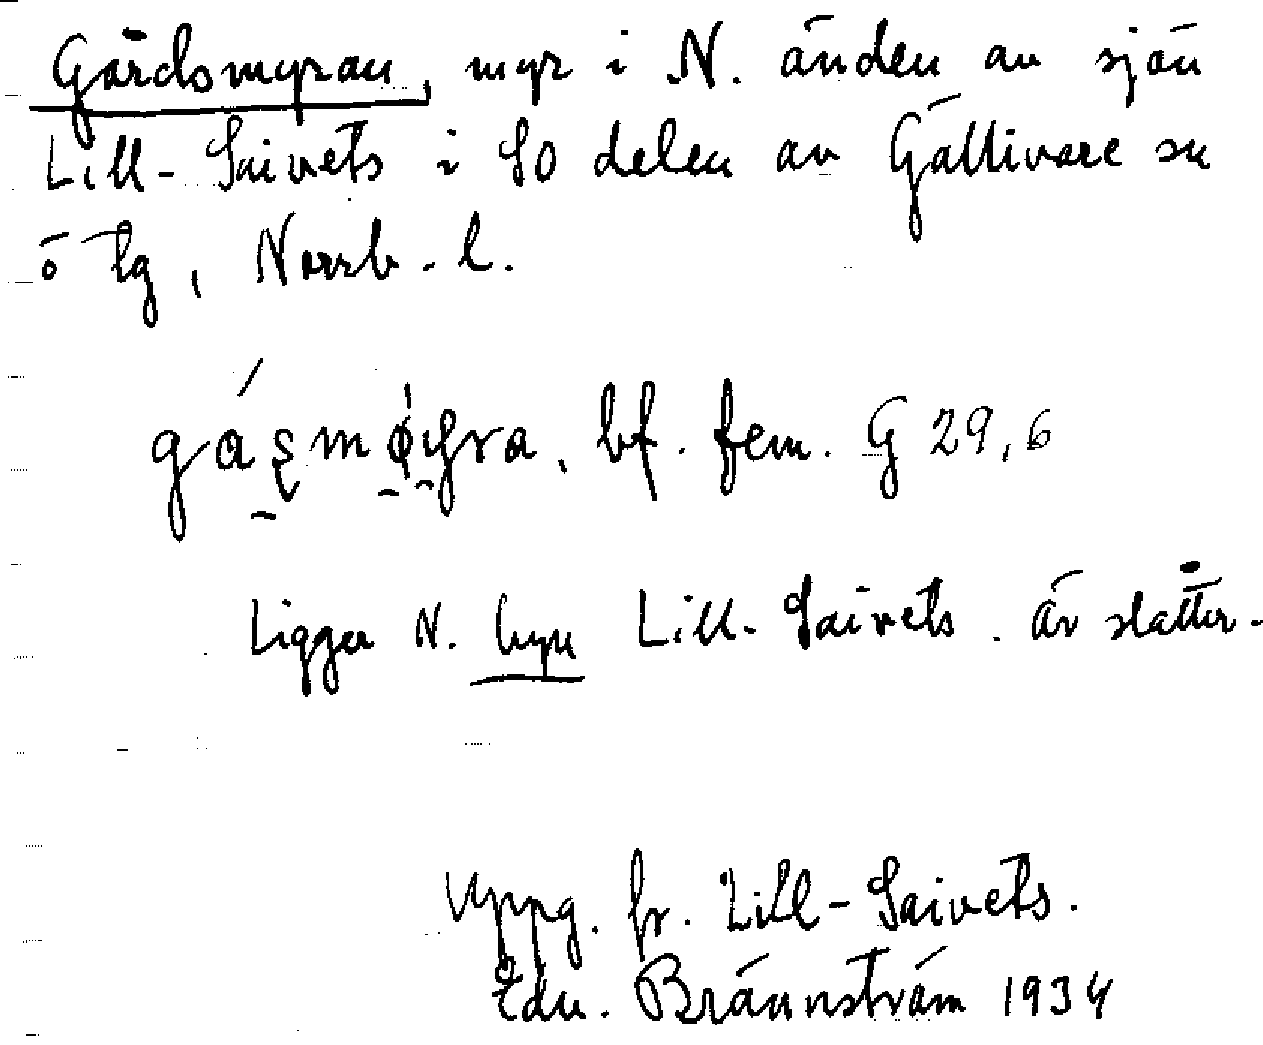 Gårdsmyran, myr i N. änden av sjön
Lill-Saivets i SO delen av Gällivare sn
ö tg, Norrb. l.
bf. fem. G 29,6
Ligger N. byn Lill-Saivets. Är slåtter-
Uppg. fr. Lill-Saivets.
Edv. Brännström 1934